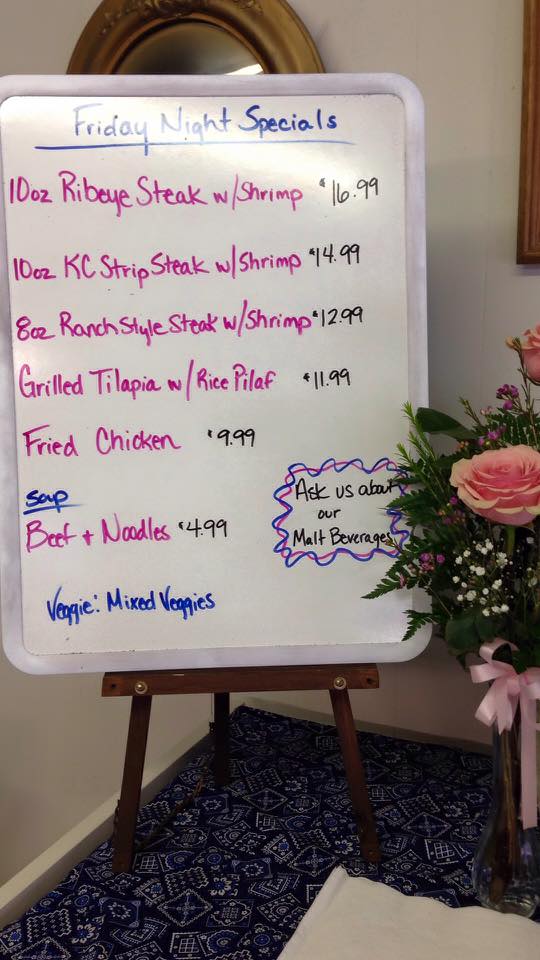 Friday Night Specials
10oz Ribeye Steak w/Shrimp $16.99
10oz KC Strip Steak w/Shrimp $14.99
8oz Ranch Style Steak w/Shrimp $12.99
Grilled Tilapia w/Rice Pilaf $11.99
Fried Chicken $9.99
Soup
Beef + Noodles $4.99
Ask us about
our
Malt Beverages
Veggie: Mixed Veggies